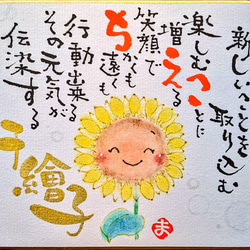 新しいことを取り込む
楽しむことに
増える
笑顔で
ちかくも遠くも
行動出来る
その元気が
伝染する
千繪子
ま